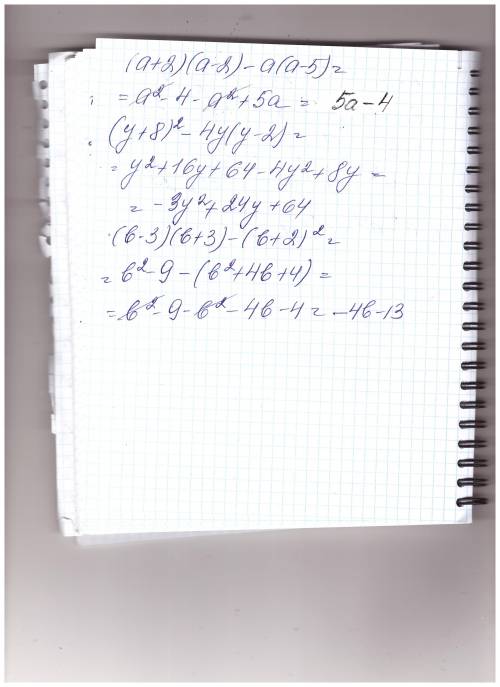 (a+2)(a-2)-a(a-5)=
= a²-4-a²+5a = 5a-4
(y+8)²-4y(y-2)=
= y²+16y+64-4y²+8y =
= -3y²+24y+64
(в-3)(в+3)-(в+2)²=
= в²-9-(в²+4в+4)=
= в²-9-в²-4в-4= -4в-13